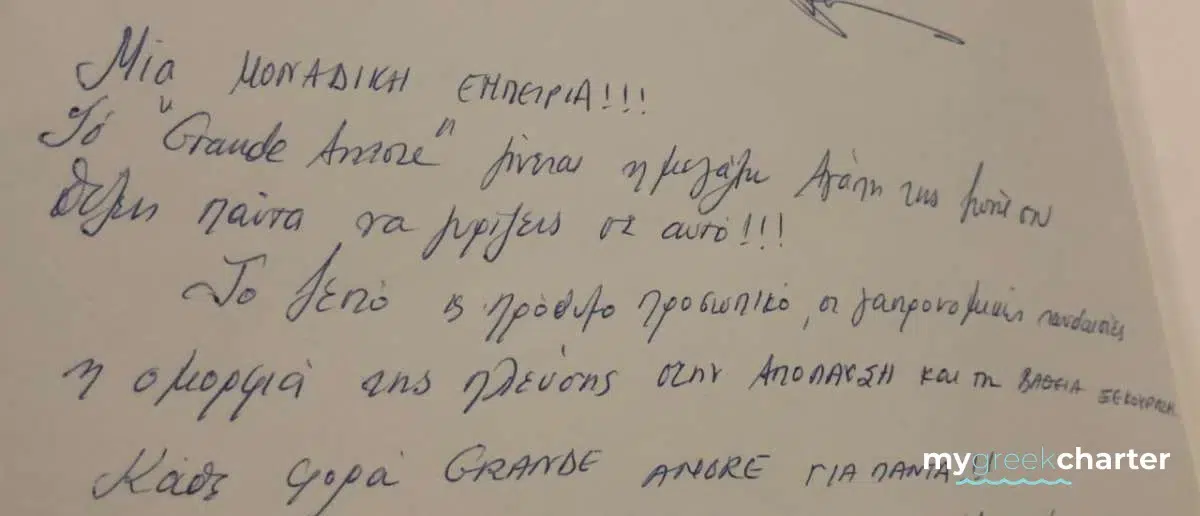 Μία ΜΟΝΑΔΙΚΗ ΕΜΠΕΙΡΙΑ!!!
Τό "Grande Amore" γίνεται η μεγάλη Αγάπη της
θέλεις πάντα να γυρίζεις σε αυτό!!!
Τό ζεστό κ πρόθυμο προσωπικό, οι γαστρονομικές πανδαισίες
η ομορφιά της πλεύσης στην ΑΠΟΛΑΥΣΗ και τη ΒΑΘΕΙΑ ΞΕΚΟΥΡΑΣΗ
Κάθε φορά GRANDE AMORE ΓΙΑ ΠΑΝΤΑ!
mygreekcharter